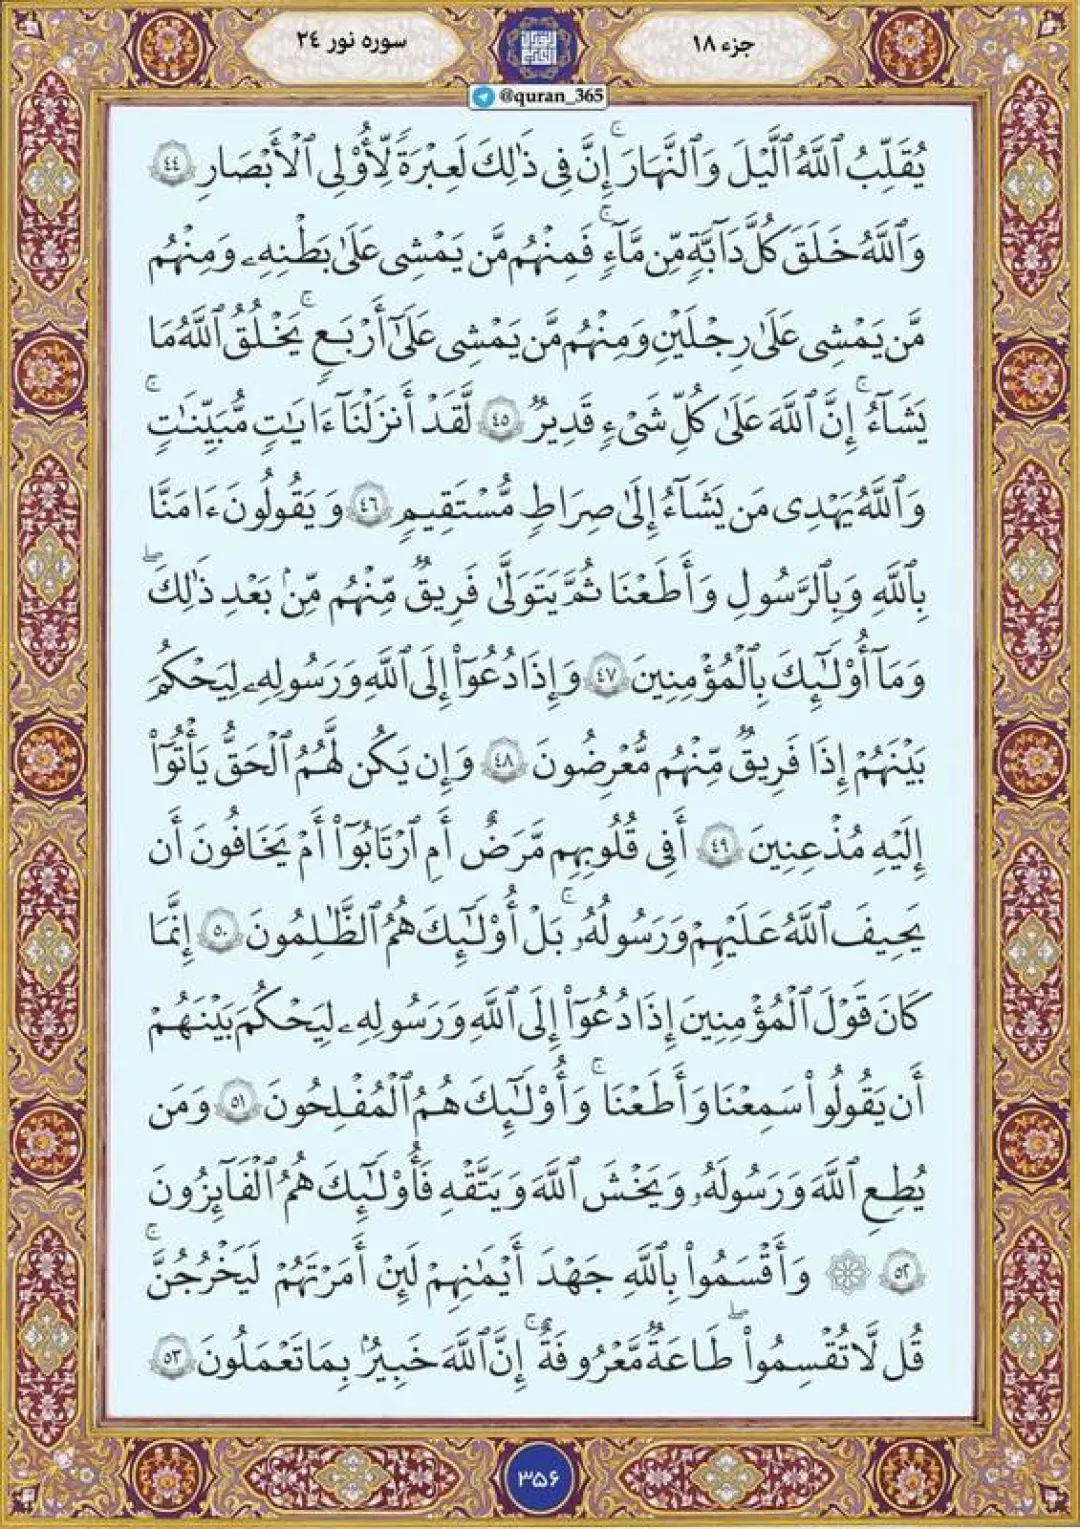 جزء ۱۸
سوره نور ۲۴
@quran_365
يُقَلِّبُ ٱللَّهُ ٱلَّيْلَ وَٱلنَّهَارَۚ إِنَّ فِى ذَٰلِكَ لَعِبْرَةً لِّأُوْلِى ٱلْأَبْصَٰرِ ٤٤
وَٱللَّهُ خَلَقَ كُلَّ دَآبَّةٍ مِّن مَّآءٍۚ فَمِنْهُم مَّن يَمْشِى عَلَىٰ بَطْنِهِۦ وَمِنْهُم
مَّن يَمْشِى عَلَىٰ رِجْلَيْنِ وَمِنْهُم مَّن يَمْشِى عَلَىٰٓ أَرْبَعٍۚ يَخْلُقُ ٱللَّهُ مَا
يَشَآءُۚ إِنَّ ٱللَّهَ عَلَىٰ كُلِّ شَىْءٍ قَدِيرٌ ٤٥ لَّقَدْ أَنزَلْنَآ ءَايَٰتٍ مُّبَيِّنَٰتٍۚ
وَٱللَّهُ يَهْدِى مَن يَشَآءُ إِلَىٰ صِرَاطٍ مُّسْتَقِيمٍ ٤٦ وَيَقُولُونَ ءَامَنَّا
بِٱللَّهِ وَبِٱلرَّسُولِ وَأَطَعْنَا ثُمَّ يَتَوَلَّىٰ فَرِيقٌ مِّنْهُم مِّنۢ بَعْدِ ذَٰلِكَۖ
وَمَآ أُوْلَٰٓئِكَ بِٱلْمُؤْمِنِينَ ٤٧ وَإِذَا دُعُوٓاْ إِلَى ٱللَّهِ وَرَسُولِهِۦ لِيَحْكُمَ
بَيْنَهُمْ إِذَا فَرِيقٌ مِّنْهُم مُّعْرِضُونَ ٤٨ وَإِن يَكُن لَّهُمُ ٱلْحَقُّ يَأْتُوٓاْ
إِلَيْهِ مُذْعِنِينَ ٤٩ أَفِى قُلُوبِهِم مَّرَضٌ أَمِ ٱرْتَابُوٓاْ أَمْ يَخَافُونَ أَن
يَحِيفَ ٱللَّهُ عَلَيْهِمْ وَرَسُولُهُۥۚ بَلْ أُوْلَٰٓئِكَ هُمُ ٱلظَّٰلِمُونَ ٥٠ إِنَّمَا
كَانَ قَوْلَ ٱلْمُؤْمِنِينَ إِذَا دُعُوٓاْ إِلَى ٱللَّهِ وَرَسُولِهِۦ لِيَحْكُمَ بَيْنَهُمْ
أَن يَقُولُواْ سَمِعْنَا وَأَطَعْنَاۚ وَأُوْلَٰٓئِكَ هُمُ ٱلْمُفْلِحُونَ ٥١ وَمَن
يُطِعِ ٱللَّهَ وَرَسُولَهُۥ وَيَخْشَ ٱللَّهَ وَيَتَّقْهِ فَأُوْلَٰٓئِكَ هُمُ ٱلْفَآئِزُونَ
٥٢ ۞ وَأَقْسَمُواْ بِٱللَّهِ جَهْدَ أَيْمَٰنِهِمْ لَئِنْ أَمَرْتَهُمْ لَيَخْرُجُنَّۚ
قُل لَّا تُقْسِمُواْۖ طَاعَةٌ مَّعْرُوفَةٌۚ إِنَّ ٱللَّهَ خَبِيرُۢ بِمَا تَعْمَلُونَ ٥٣
۳۵۶